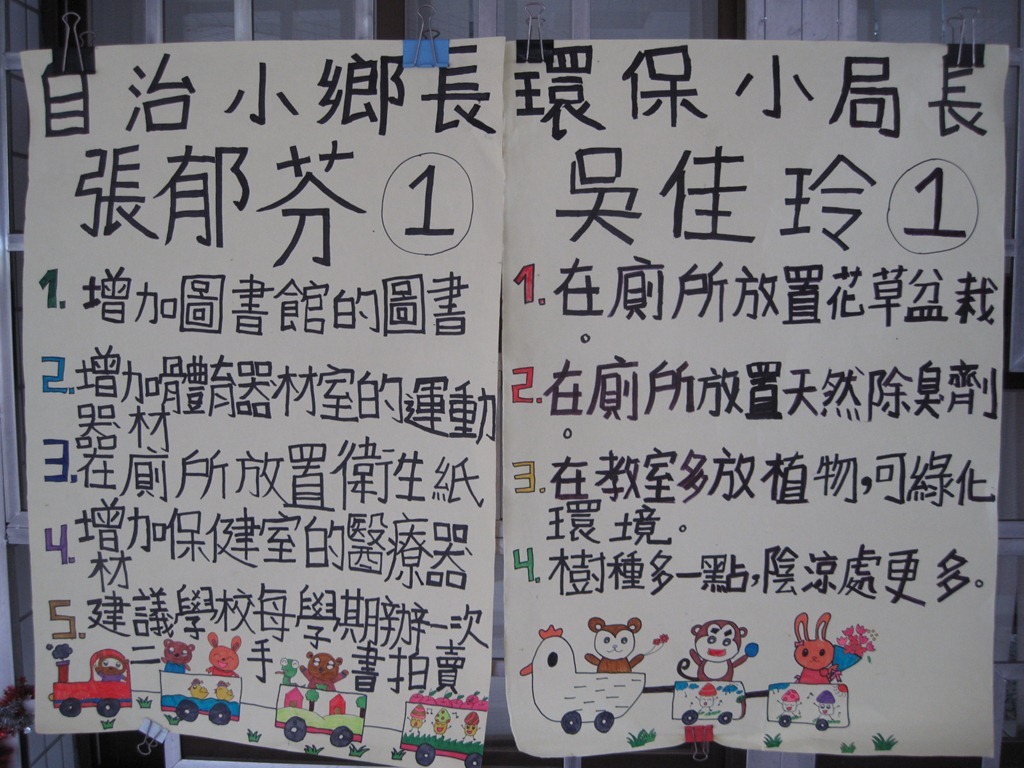 自治小鄉長
張郁芬 1
1. 增加圖書館的圖書
2. 增加體育器材室的運動
器材
3. 在廁所放置衛生紙
4. 增加保健室的醫療器
材
5. 建議學校每學期辦一次
二手書拍賣
環保小局長
吳佳玲 1
1. 在廁所放置花草盆栽
。
2. 在廁所放置天然除臭劑
。
3. 在教室多放植物,可綠化
環境。
4. 樹種多一點,陰涼處更多。